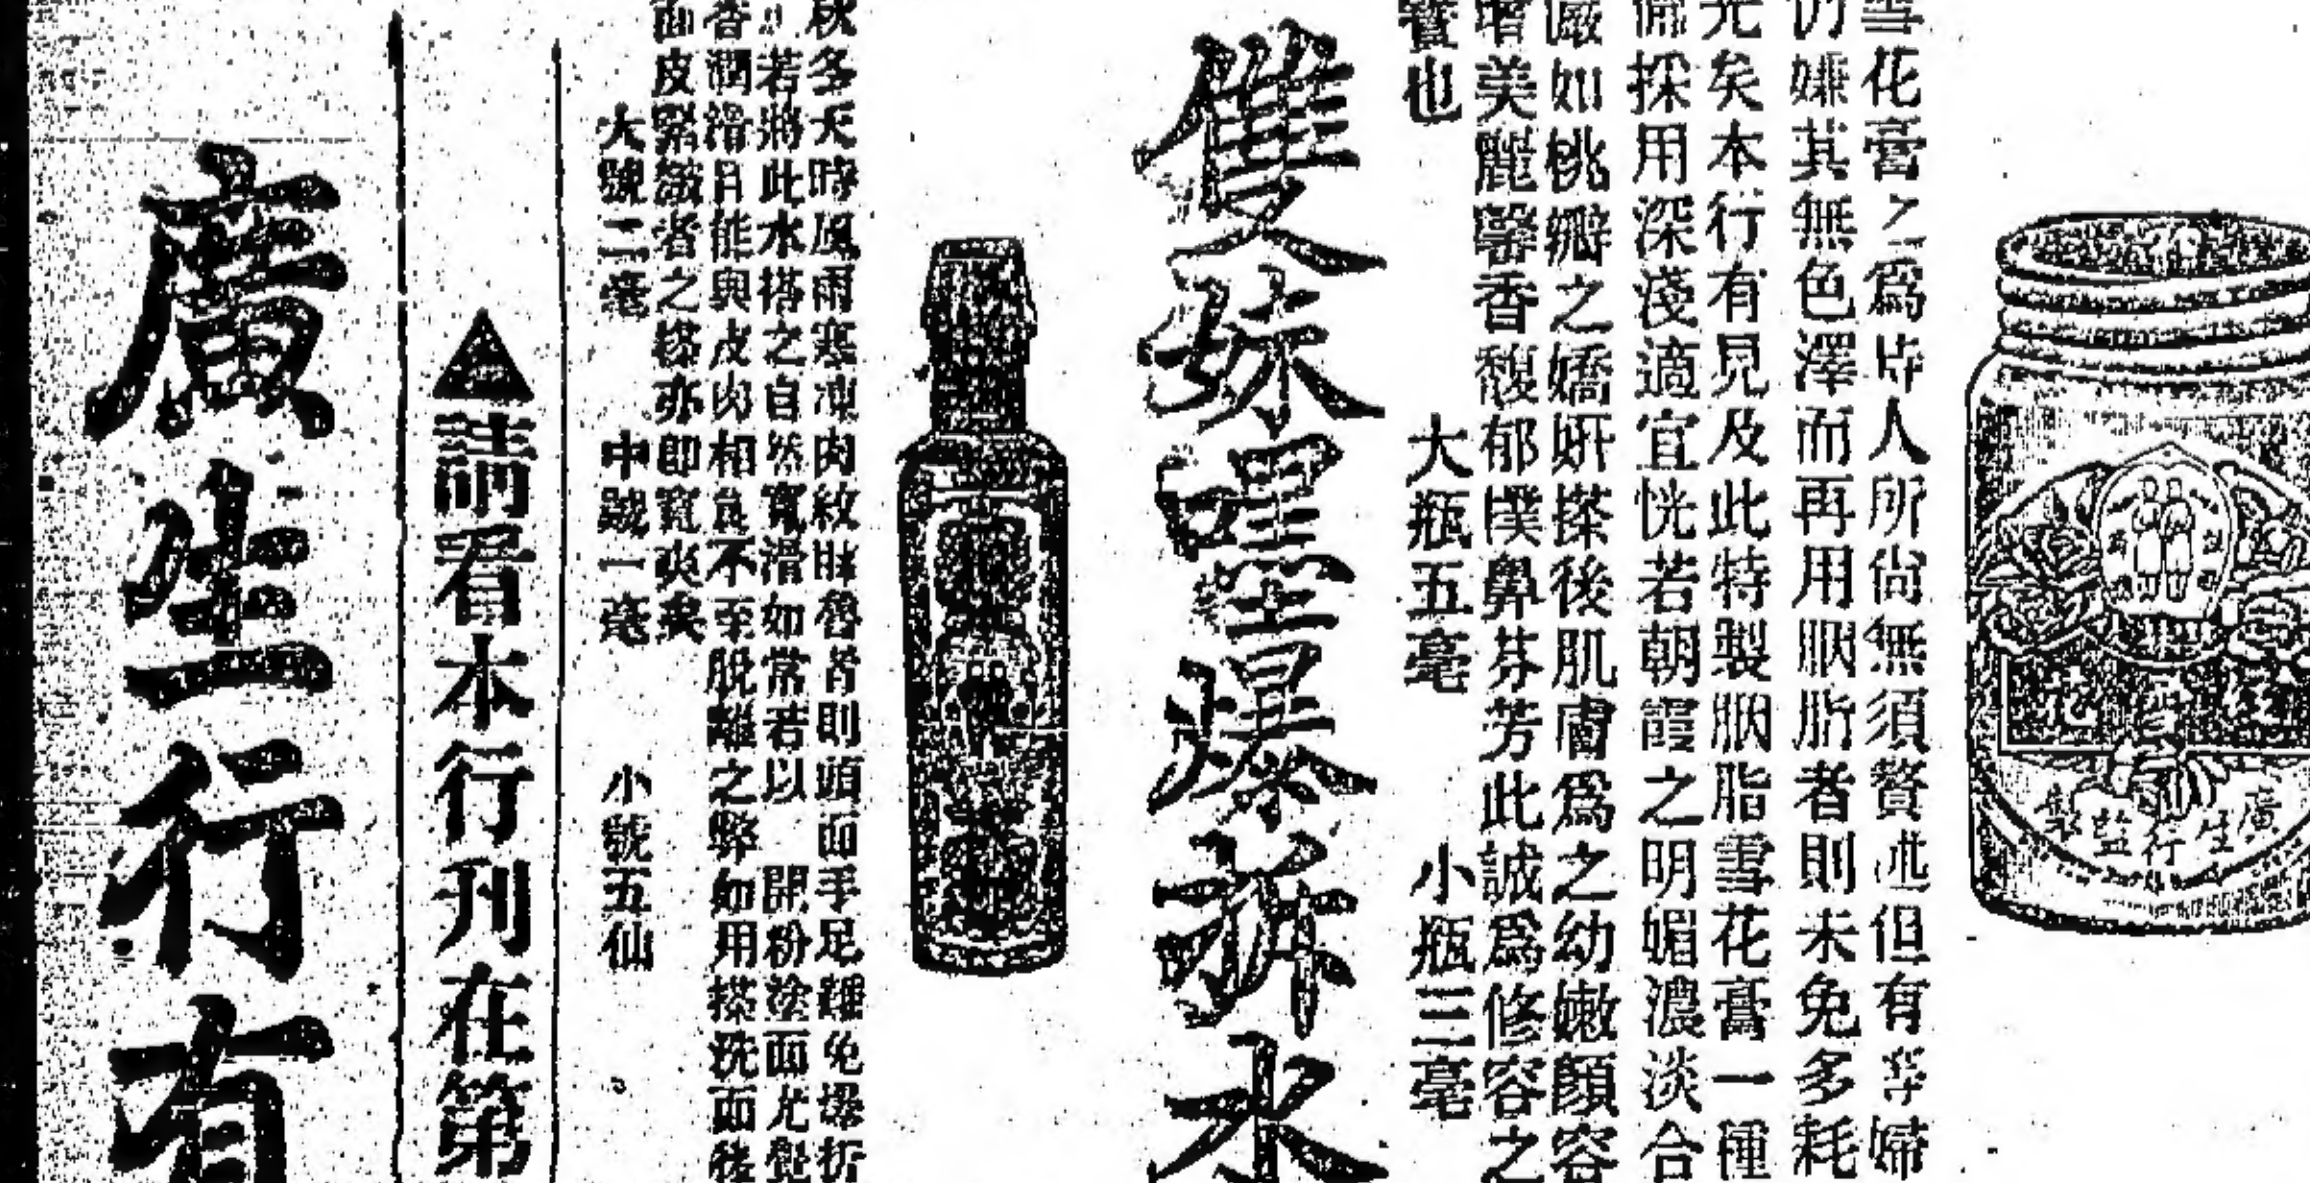 雪花膏之爲時人所尙無須贅述但有等婦
仍嫌其無色澤而再用胭脂者則未免多耗
光矣本行有見及此特製胭脂雪花膏一種
備採用深淺適宜恍若朝霞之明媚濃淡合
儼如桃瓣之嬌妍搽後肌膚爲之幼嫩顏容
增美麗馨香馥郁撲鼻芬芳此誠爲修容之
也 大瓶五毫 小瓶三毫
廣生行監製
雙妹嘿爆拆水
秋冬天時風雨寒凍肉紋粗魯者則頭面手足難免爆拆
若將此水搭之自然寬滑如常若以 開粉塗面尤覺
香潤滑且能與皮肉相食不至脫離之弊如用搽洗面後
面皮緊皺者之搽亦即寬爽矣
大號二毫 中號一毫 小號五仙
▲請看本行刋在第
廣生行有